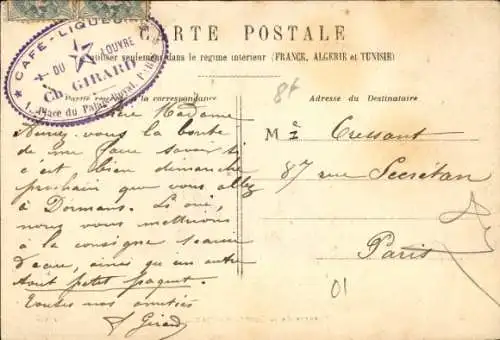 CARTE POSTALE
à utiliser seulement dans le régime intérieur (FRANCE, ALGERIE et TUNISIE)
CAFÉ-LIQUEURS
DU LOUVRE
Ch. GIRARD
1, Place du Palais-Royal, PARIS
Partie réservée à la correspondance
Adresse du Destinataire
Chère Madame
Auriez-vous la bonté
de me faire savoir si
c'est bien dimanche
prochain que vous allez
à Dormans. Si oui,
nous vous mettrions
à la consigne
d'eau, ainsi qu'un autre
tout petit paquet.
Toutes nos amitiés
Girard
Cressant
87 rue Secrétan
Paris
01